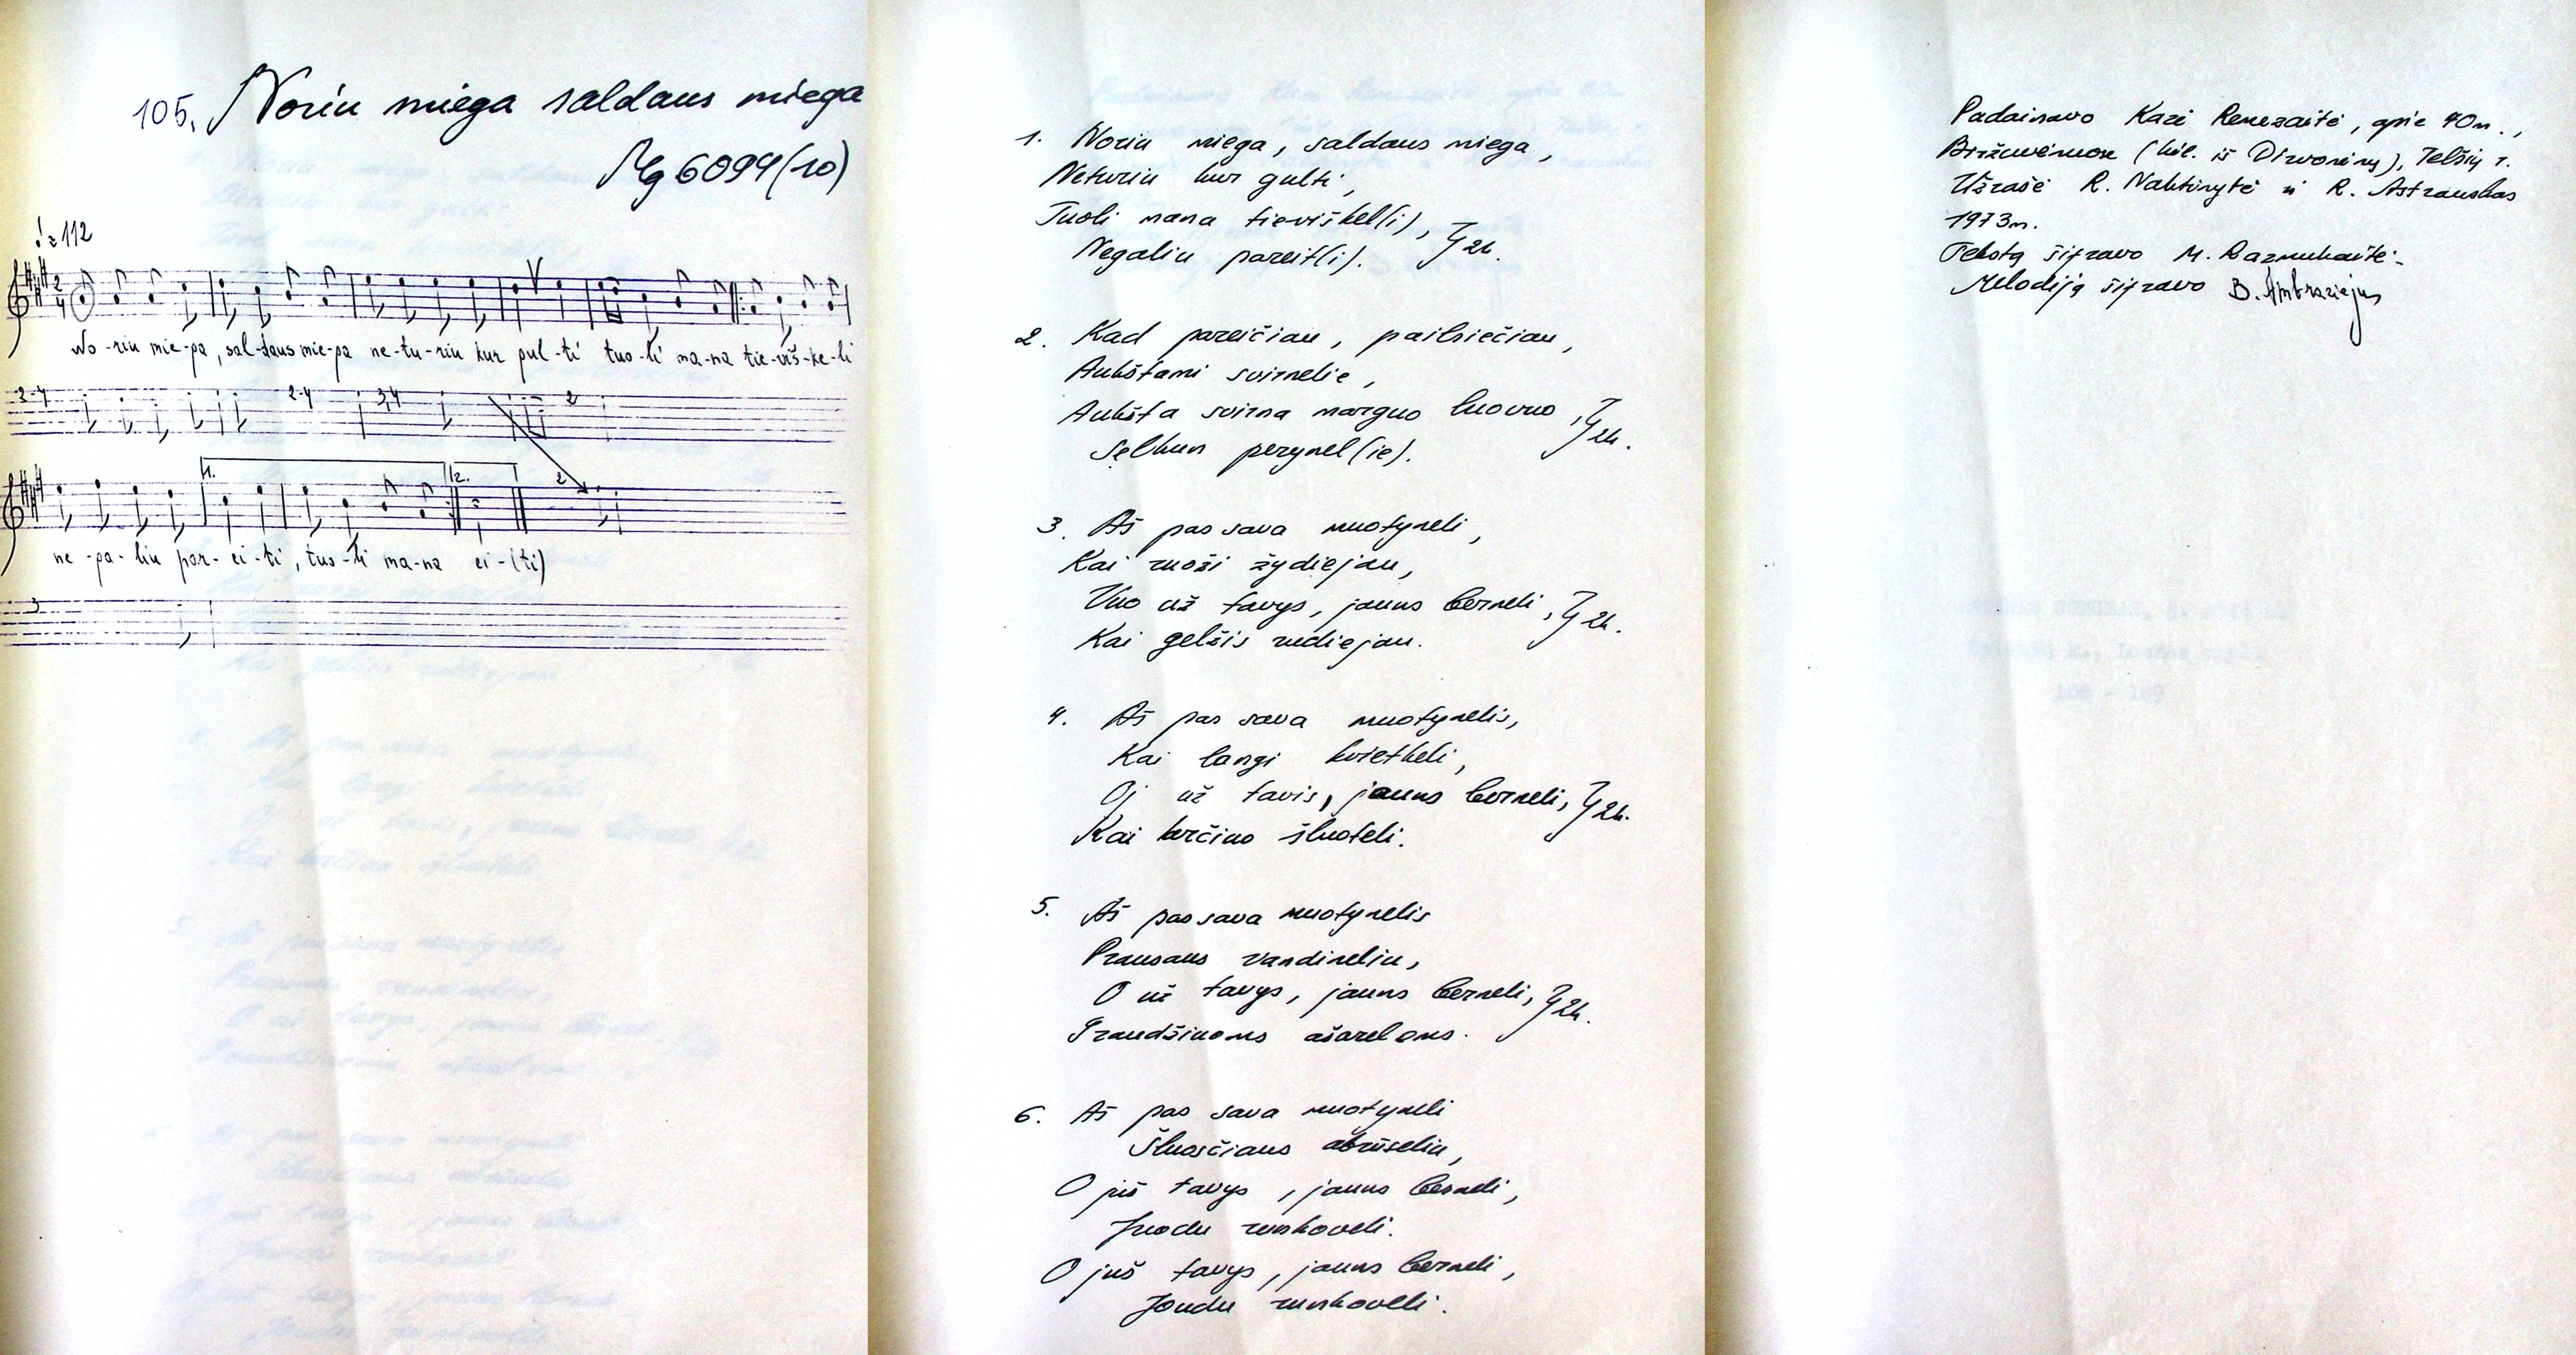 105. Noriu miega saldaus miega
Mg 6094(10)
♩=112
No-riu mie-ga, sal-daus mie-ga ne-tu-riu kur gul-ti tuo-li ma-na tie-viš-ke-li
2-4 2-4 3,4 2
1. 2. 2
ne-ga-liu par-ei-ti, tuo-li ma-na ei-(ti)
3
1. Noriu miega, saldaus miega,
Neturiu kur gulti,
Tuoli mana tieviškel(i), } 2k.
Negaliu pareit(i).
2. Kad pareičiau, pailsiečiau,
Aukštami svirnelie,
Aukšta svirna marguo luovuo, } 2k.
Šelkun perynel(ie).
3. Aš pas sava muotyneli,
Kai ruoži žydiejau,
Vuo už tavys, jauns berneli, } 2k.
Kai gelžis rudiejau.
4. Aš pas sava muotynelis,
Kai langi kvietkeli,
Oj už tavis, jauns berneli, } 2k.
Kai kerčiuo šluoteli.
5. Aš pas sava muotynelis
Prausaus vandineliu,
O už tavys, jauns berneli, } 2k.
Graudžiuoms ašareloms.
6. Aš pas sava muotyneli
Šluosčiaus abrūseliu,
O již tavys, jauns berneli,
Juodu rankoveli.
O juš tavys, jauns berneli,
Joudu rankoveli.
Padainavo Kazė Renezaitė, apie 40 m.,
Biržuvėnuose (kil. iš Dirvonėnų), Telšių r.
Užrašė R. Naktinytė ir R. Astrauskas
1973 m.
Tekstą šifravo M. Razmukaitė.
Melodiją šifravo B. Ambraziejus